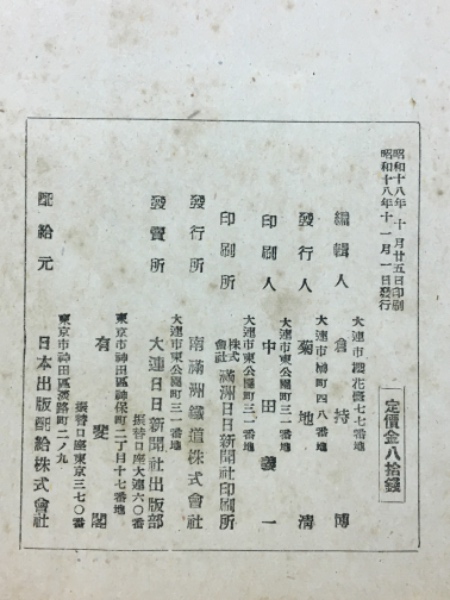 昭和十八年 十 月廿五日印刷
昭和十八年十一月一日發行
定價金八拾錢
大連市櫻花臺七七番地
編輯人 倉持 博
大連市柳町四八番地
發行人 菊地 清
大連市東公園町三一番地
印刷人 中田義一
大連市東公園町三一番地
印刷所 株式會社 滿洲日日新聞社印刷所
發行所 南滿洲鐵道株式會社
大連市東公園町三一番地
發賣所 大連日日新聞社出版部
振替口座大連六〇番
東京市神田區神保町二丁目十七番地
有斐閣
振替口座東京三七〇番
東京市神田區淡路町二ノ九
配給元 日本出版配給株式會社